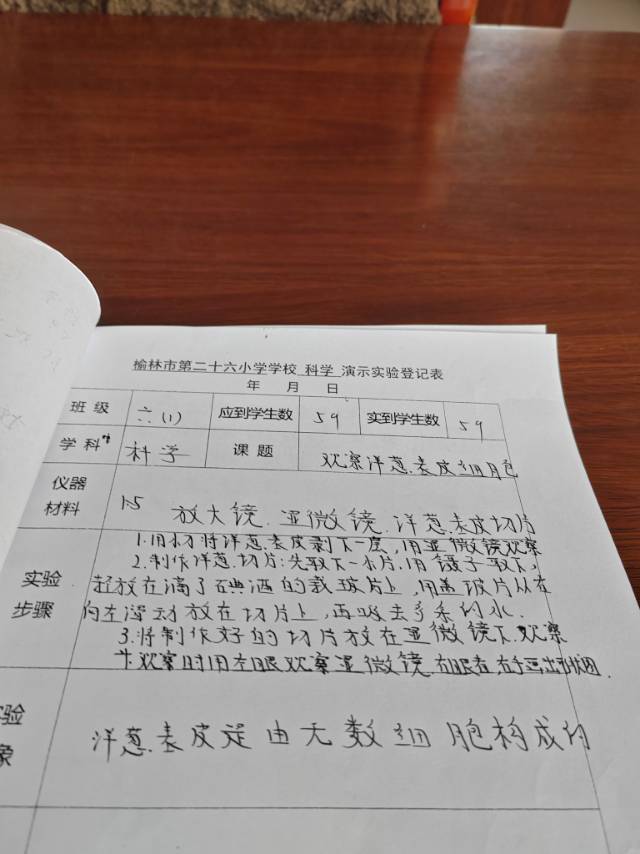 榆林市第二十六小学学校 科学 演示实验登记表
年 月 日
班级 六(1) 应到学生数 59 实到学生数 59
学科 科学 课题 观察洋葱表皮细胞
仪器材料 1-5 放大镜.显微镜.洋葱表皮切片
实验步骤 1.用 将洋葱表皮剥下一层,用显微镜观察
2.制作洋葱切片:先取下一小片,用镊子取下,
轻放在滴了碘酒的载玻片上,用盖玻片从右
向左滑动放在切片上,再吸去多余的水.
3.将制作好的切片放在显微镜下观察
4.观察时用左眼观察显微镜,右眼 右手画出 图.
验象 洋葱表皮是由无数细胞构成的